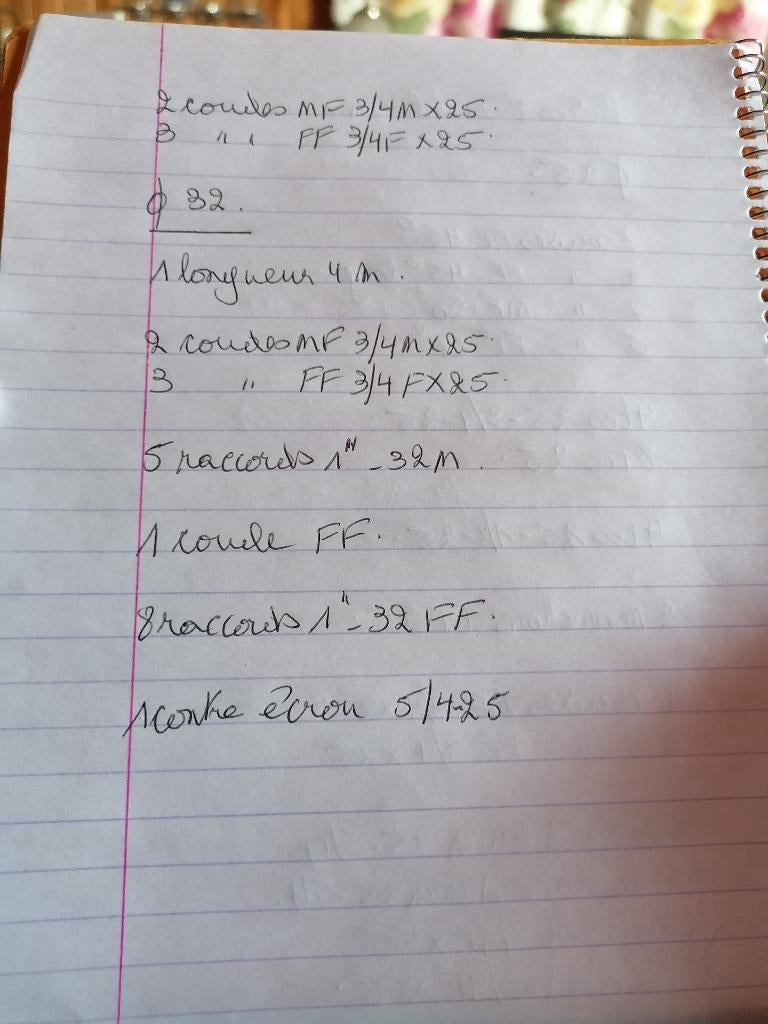 2 coudes MF 3/4M x 25.
3 " " FF 3/4F x 25.
ϕ 32.
1 longueur 4 m.
2 coudes MF 3/4M x 25.
3 " FF 3/4 F x 25.
5 raccords 1" - 32 M.
1 coude FF.
8 raccords 1" - 32 FF.
1 contre écrou 5/4-25